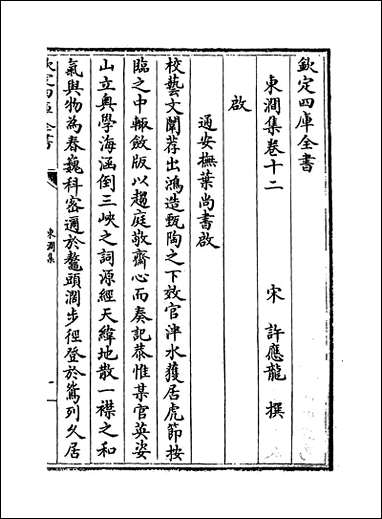 欽定四庫全書
東澗集卷十二
宋 許應龍 撰
啟
通安撫葉尚書啟
校藝文闈荐出鴻造甄陶之下效官泮水獲居虎節按
臨之中輙斂版以趨庭敬齋心而奏記恭惟某官英姿
山立奥學海涵倒三峽之詞源經天緯地散一襟之和
氣與物為春巍科密邇於鼇頭濶步徑登於鴛列久居
東澗集
一